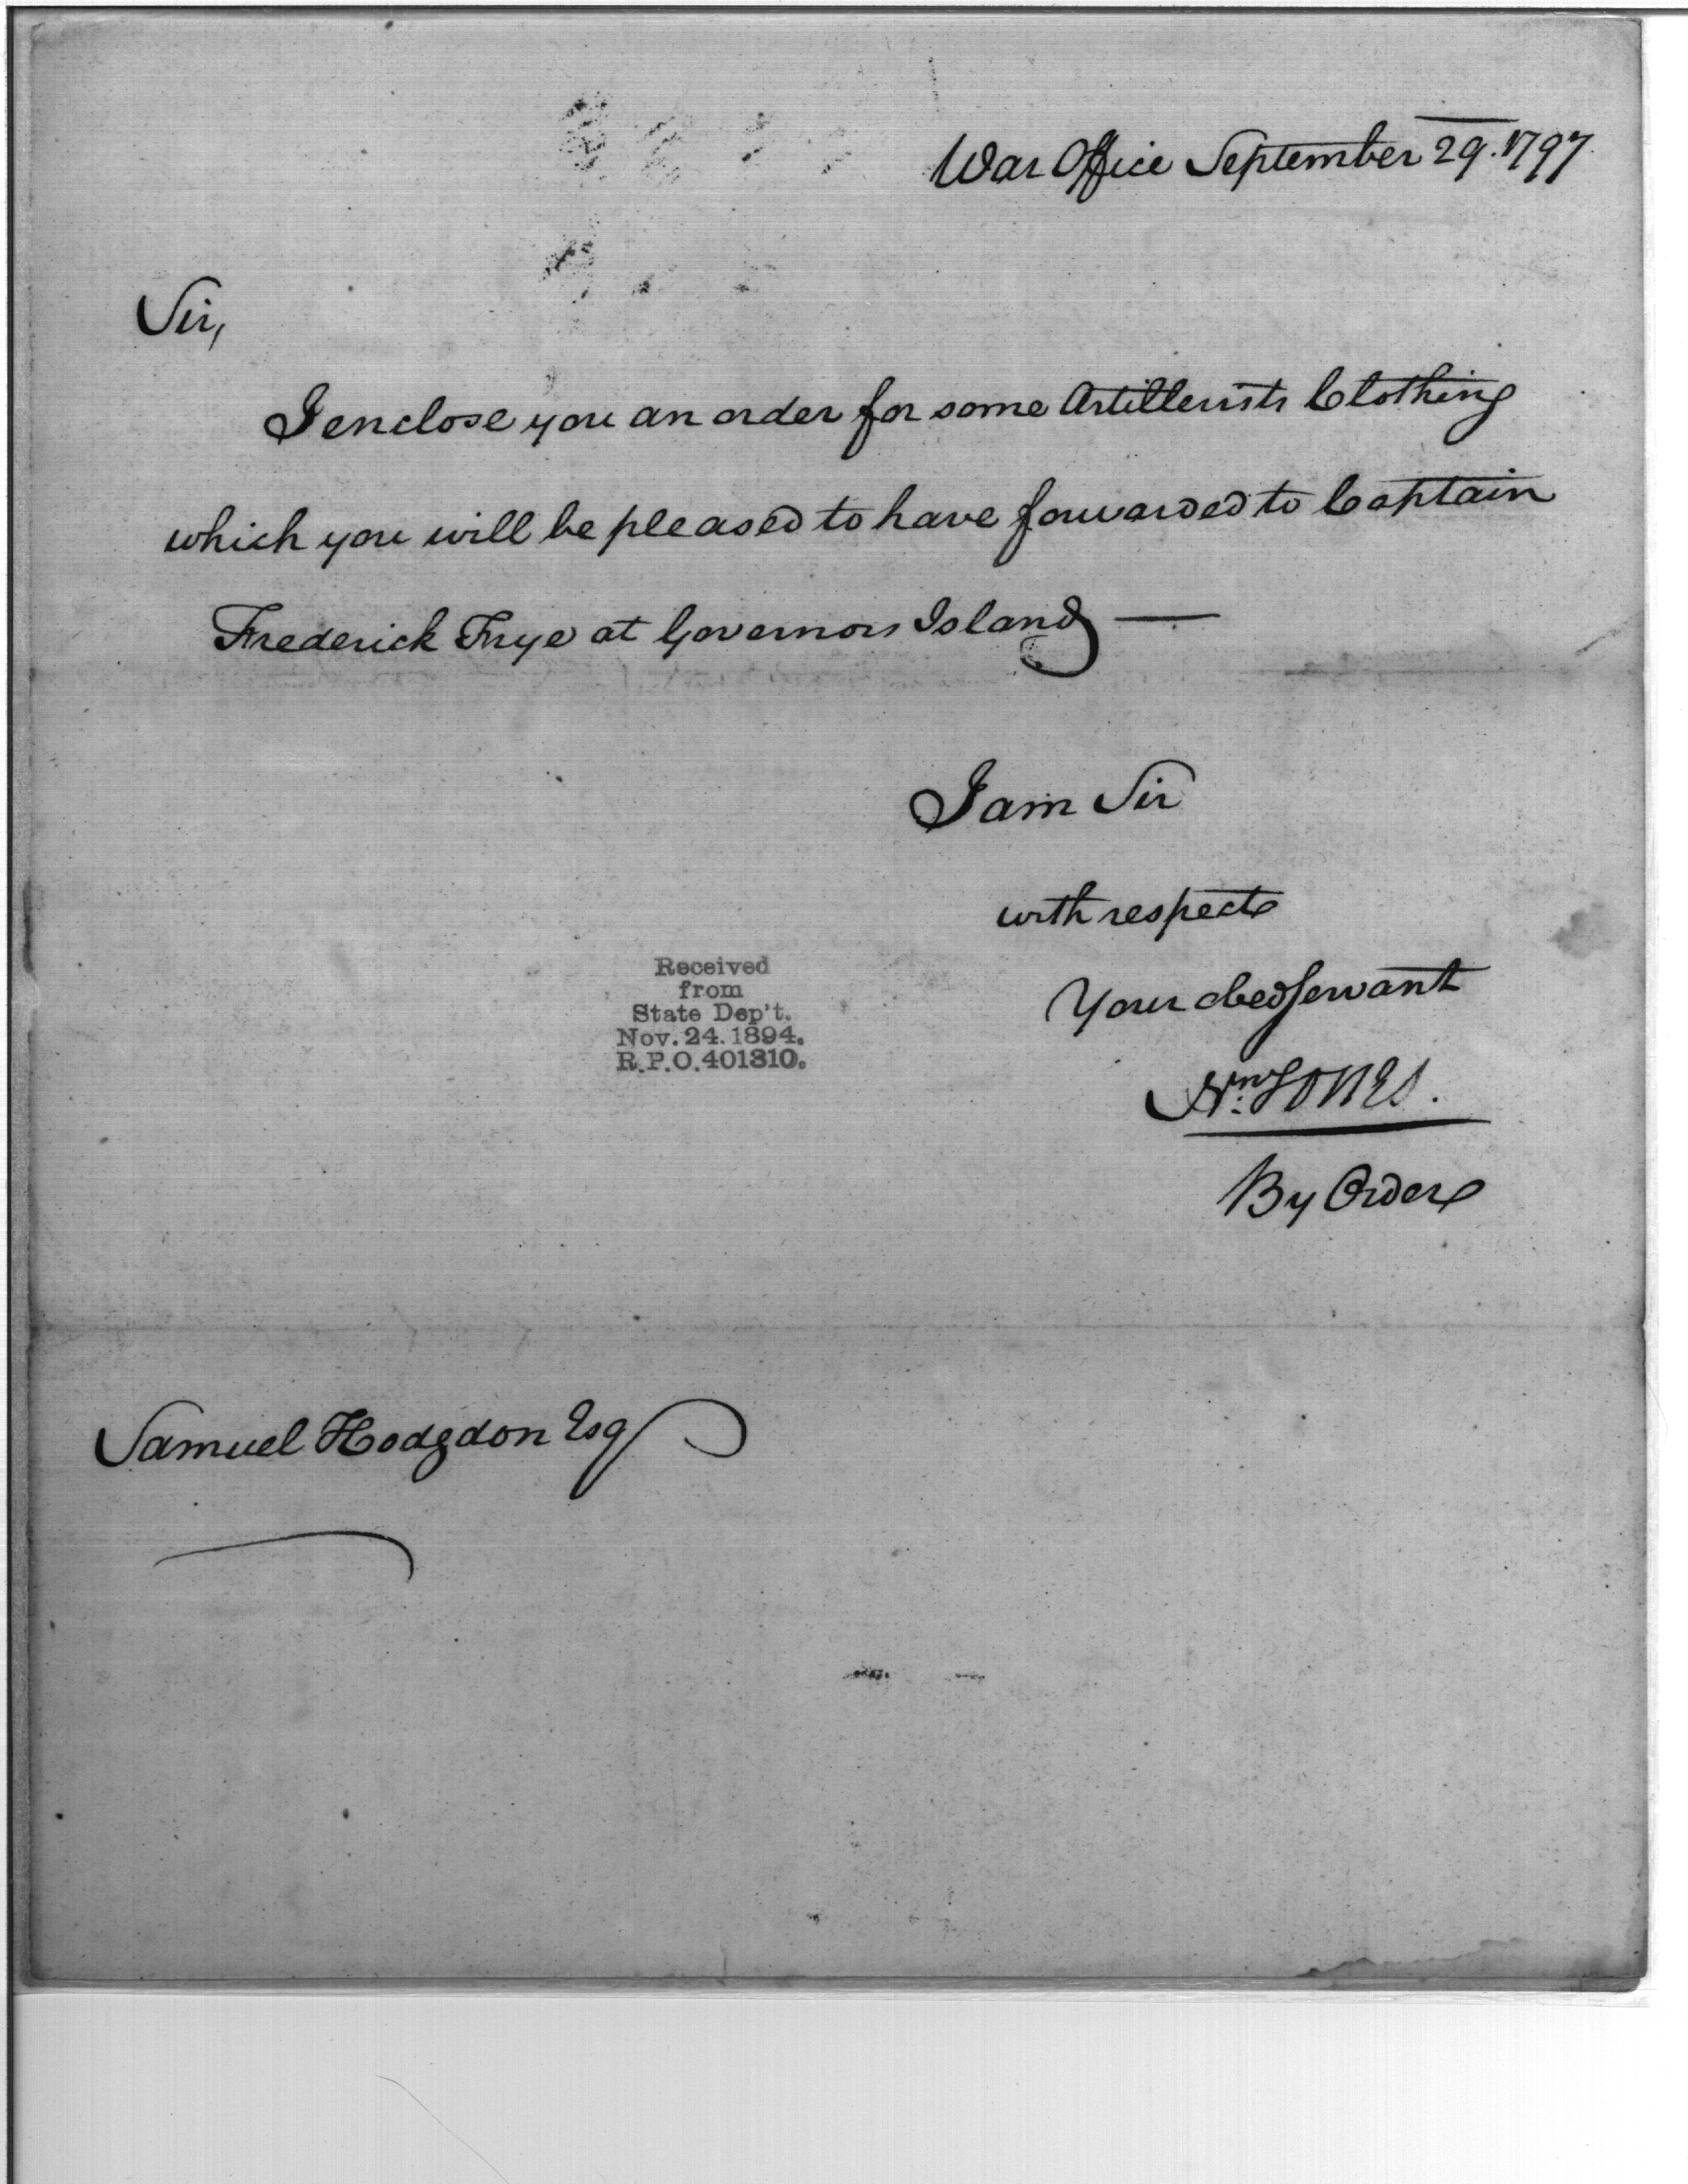 War Office September 29. 1797.
Sir,
I enclose you an order for some Artillerists Clothing
which you will be pleased to have forwarded to Captain
Frederick Frye at Governors Island —
I am Sir
with respect
Your obed servant
Received
from
State Dep't.
Nov. 24. 1894.
R.P.O. 401310.
Wm Jones.
By Order
Samuel Hodgdon Esq